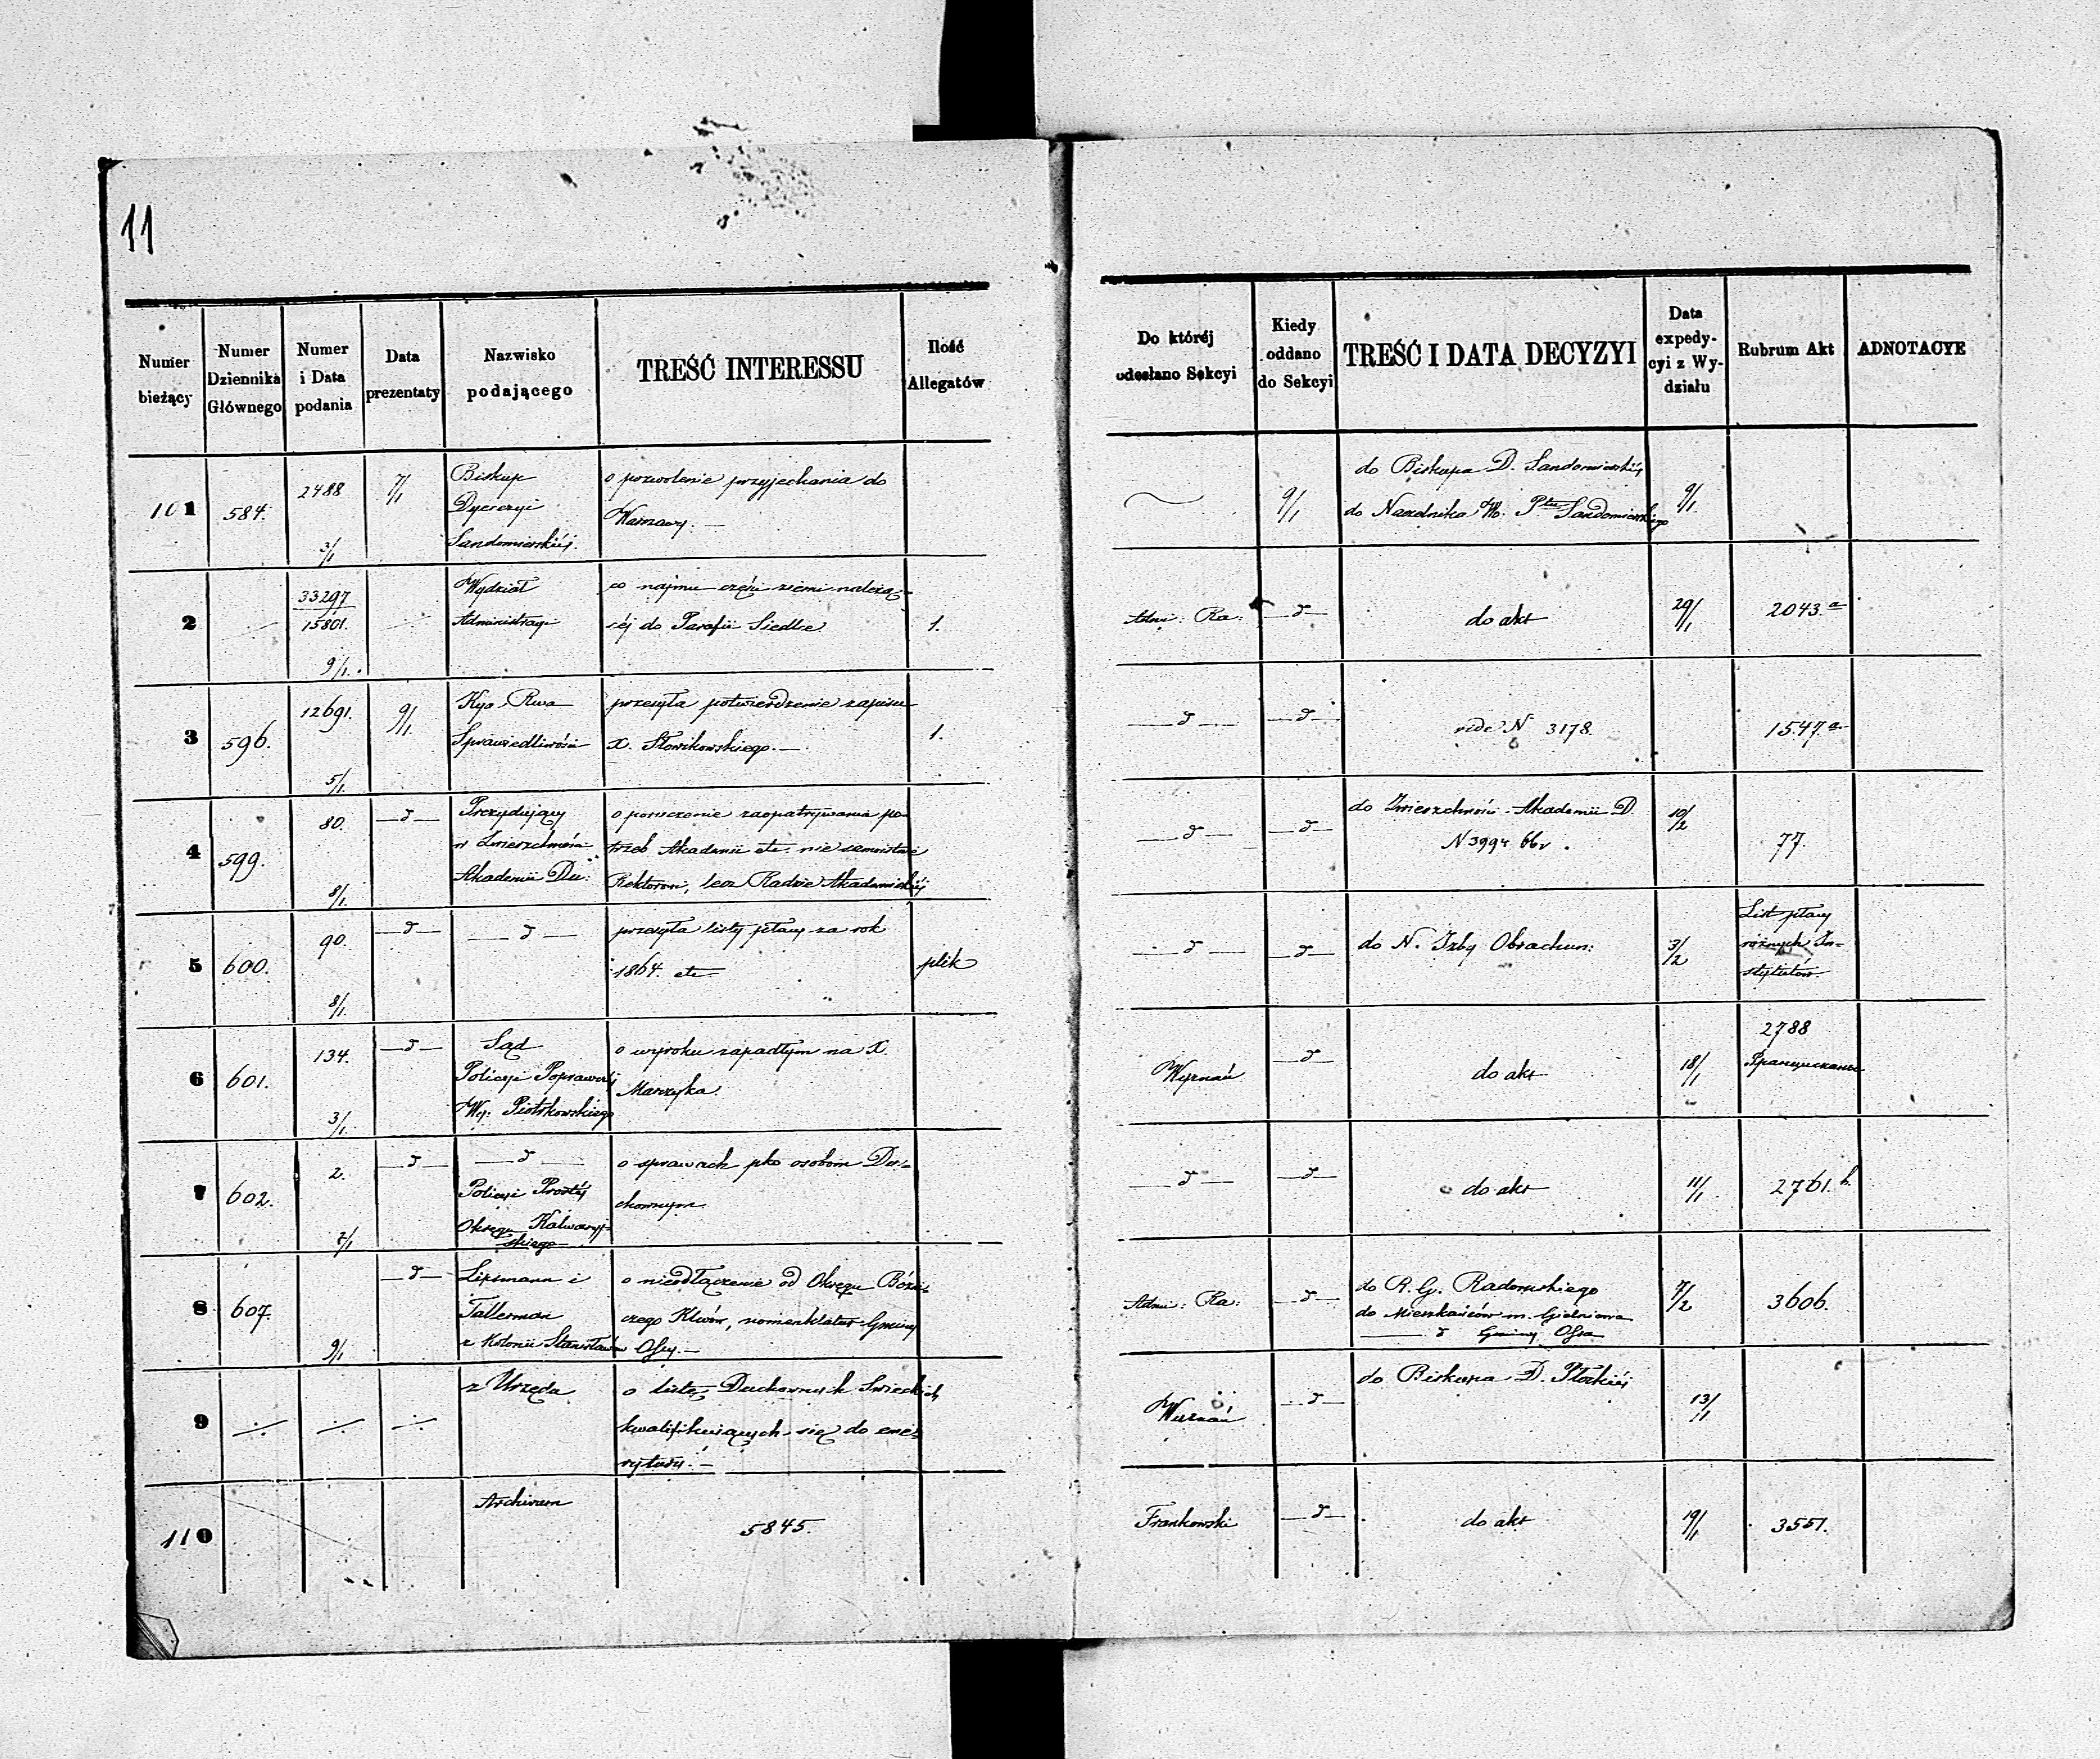 11
Numer bieżący
Numer Dziennika Głównego
Numer i Data podania
Data prezentaty
Nazwisko podającego
TREŚĆ INTERESSU
Ilość Allegatów
Do któréj odesłano Sekcyi
Kiedy oddano do Sekcyi
TREŚĆ I DATA DECYZYI
Data expedycyi z Wydziału
Rubrum Akt
ADNOTACYE
101
584.
2488
3/1
7/1
Biskup
Dyecezyi
Sandomierskiéj.
o pozwolenie przyjechania do
Warszawy. —
9/1
do Biskupa D. Sandomierskiéj
do Naczelnika Wo. Ptu Sandomierskiego
9/1
2
33297
15801.
9/1.
Wydział
Administracyi
co najmu części ziemi należą-
céj do Parafii Siedlce
1.
Admi: Ra:
— d —
do akt
29/1
2043.a
3
596.
12691.
5/1.
9/1.
Kyo. Rwa
Sprawiedliwości
przesyła potwierdzenie zapisu
X. Słowikowskiego. —
1.
— d —
— d —
vide N 3178.
1547.a
4
599.
80.
8/1.
— d —
Prezydujący
w Zwierzchności
Akademii Du:
o poruczenie zaopatrywania po-
trzeb Akademii etc. nie
Rektorowi, lecz Radzie Akademickiéj
— d —
— d —
do Zwierzchności Akademii D.
N 3994
10/2
77.
5
600.
90.
8/1.
— d —
— d —
przesyła listy płacy za rok
1864. etc
plik
— d —
— d —
do N. Izby Obrachun:
3/2
List płacy
różnych In-
stytutów
6
601.
134.
3/1.
— d —
Sąd
Policyi Poprawczéj
Wy: Piotrkowskiego
o wyroku zapadłym na X.
Marczyka.
Wyznań
— d —
do akt
18/1
2788
7
602.
2.
7/1
— d —
— d —
Policyi Prostéj
Okręgu Kalwaryj-
skiego
o sprawach pko osobom Du-
chownym.
— d —
— d —
do akt
11/1
2761.b.
8
607.
9/1
— d —
Lipsmann i
Tallerman
z Kolonii Stanisławów
o nieodłączenie od Okręgu Bóżni-
czego Klwów, nomenklatur Gminy
Ossy. —
Admi: Ra:
— d —
do R. G. Radomskiego
do Mieszkańców m. Gielniowa
— d Gminy Ossa
7/2
3606.
9
z Urzędu
o listę Duchownych Świeckich
kwalifikujących się do eme-
rytury. —
Wyznań
— d —
do Biskupa D. Płockiéj
13/11
110
Archiwum
5845.
Frankowski
— d —
do akt
19/1
3551.